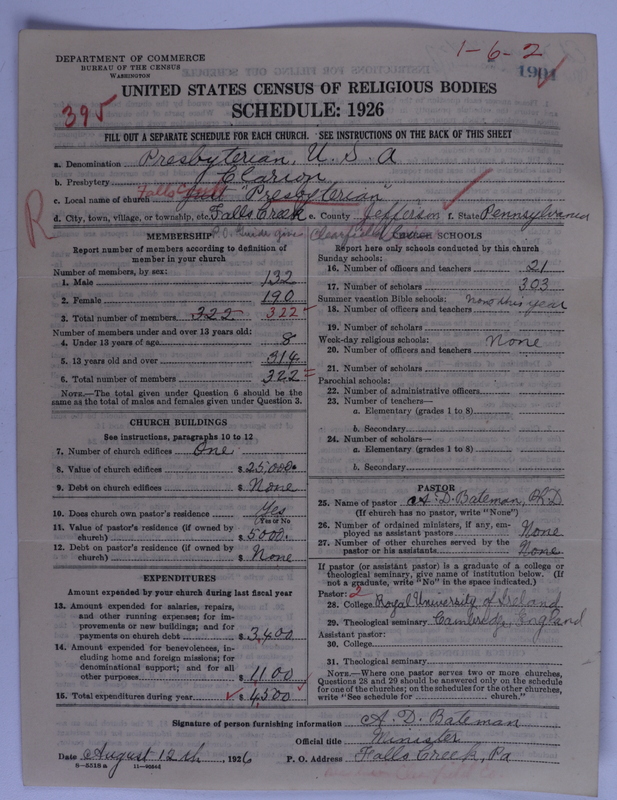 1-6-2
DEPARTMENT OF COMMERCE
BUREAU OF THE CENSUS
WASHINGTON
1901
UNITED STATES CENSUS OF RELIGIOUS BODIES
395
SCHEDULE: 1926
FILL OUT A SEPARATE SCHEDULE FOR EACH CHURCH. SEE INSTRUCTIONS ON THE BACK OF THIS SHEET
a. Denomination Presbyterian, U. S. A
b. Presbytery Clarion
Falls Creek
c. Local name of church "Presbyterian"
R
d. City, town, village, or township, etc. Falls Creek e. County Jefferson f. State Pennsylvania
P.O. Guide gives Clearfield
MEMBERSHIP
Report number of members according to definition of member in your church
Number of members, by sex:
1. Male 132
2. Female 190
3. Total number of members 322 322
Number of members under and over 13 years old:
4. Under 13 years of age 8
5. 13 years old and over 314
6. Total number of members 322
NOTE.—The total given under Question 6 should be
same as the total of males and females given under Question 3.
CHURCH BUILDINGS
See instructions, paragraphs 10 to 12
7. Number of church edifices One
8. Value of church edifices $ 25,000.
9. Debt on church edifices $ None
10. Does church own pastor's residence Yes
(Yes or No
11. Value of pastor's residence (if owned by
church) $ 5000.
12. Debt on pastor's residence (if owned by
church) $ None
EXPENDITURES
Amount expended by your church during last fiscal year
13. Amount expended for salaries, repairs,
and other running expenses; for im-
provements or new buildings; and for
payments on church debt $ 3,400
14. Amount expended for benevolences, in-
cluding home and foreign missions; for
denominational support; and for all
other purposes $ 1100
15. Total expenditures during year $ 4,500
CHURCH SCHOOLS
Report here only schools conducted by this church
Sunday schools:
16. Number of officers and teachers 21
17. Number of scholars 303
Summer vacation Bible schools: None this year
18. Number of officers and teachers
19. Number of scholars
Week-day religious schools: None
20. Number of officers and teachers
21. Number of scholars
Parochial schools:
22. Number of administrative officers
23. Number of teachers—
a. Elementary (grades 1 to 8)
b. Secondary
24. Number of scholars—
a. Elementary (grades 1 to 8)
b. Secondary
PASTOR
25. Name of pastor A. D. Bateman,
(If church has no pastor, write "None")
26. Number of ordained ministers, if any, em-
ployed as assistant pastors None
27. Number of other churches served by the
pastor or his assistants None
If pastor (or assistant pastor) is a graduate of a college or
theological seminary, give name of institution below. (If
not a graduate, write "No" in the space indicated.)
Pastor: 2
28. College Royal University of Ireland
29. Theological seminary Cambridg, England
Assistant pastor:
30. College
31. Theological seminary
NOTE.—Where one pastor serves two or more churches,
Questions 28 and 29 should be answered only on the schedule
for one of the churches; on the schedules for the other churches,
write "See schedule for church."
Signature of person furnishing information A. D. Bateman
Official title Minister
Date August 12th, 1926 P. O. Address Falls Creek, Pa
8—5518a 11—9586d